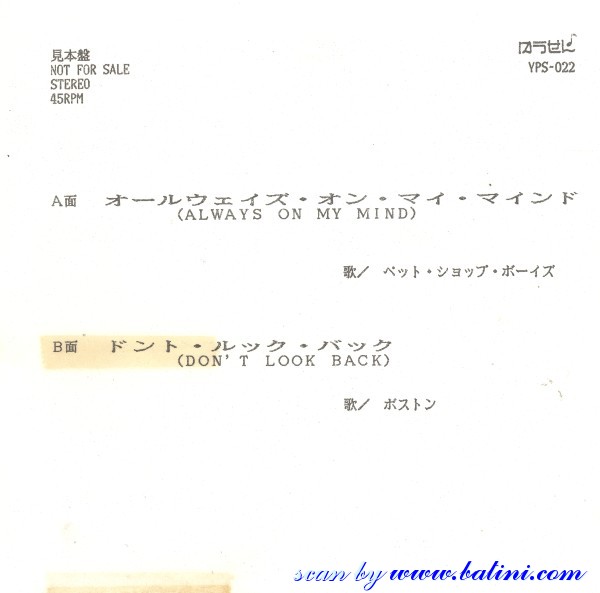 見本盤
NOT FOR SALE
STEREO
45RPM
ゆうせん
YPS-022
A面 オールウェイズ・オン・マイ・マインド
(ALWAYS ON MY MIND)
歌/ ペット・ショップ・ボーイズ
B面 ドント・ルック・バック
(DON'T LOOK BACK)
歌/ ボストン
scan by www.batini.com